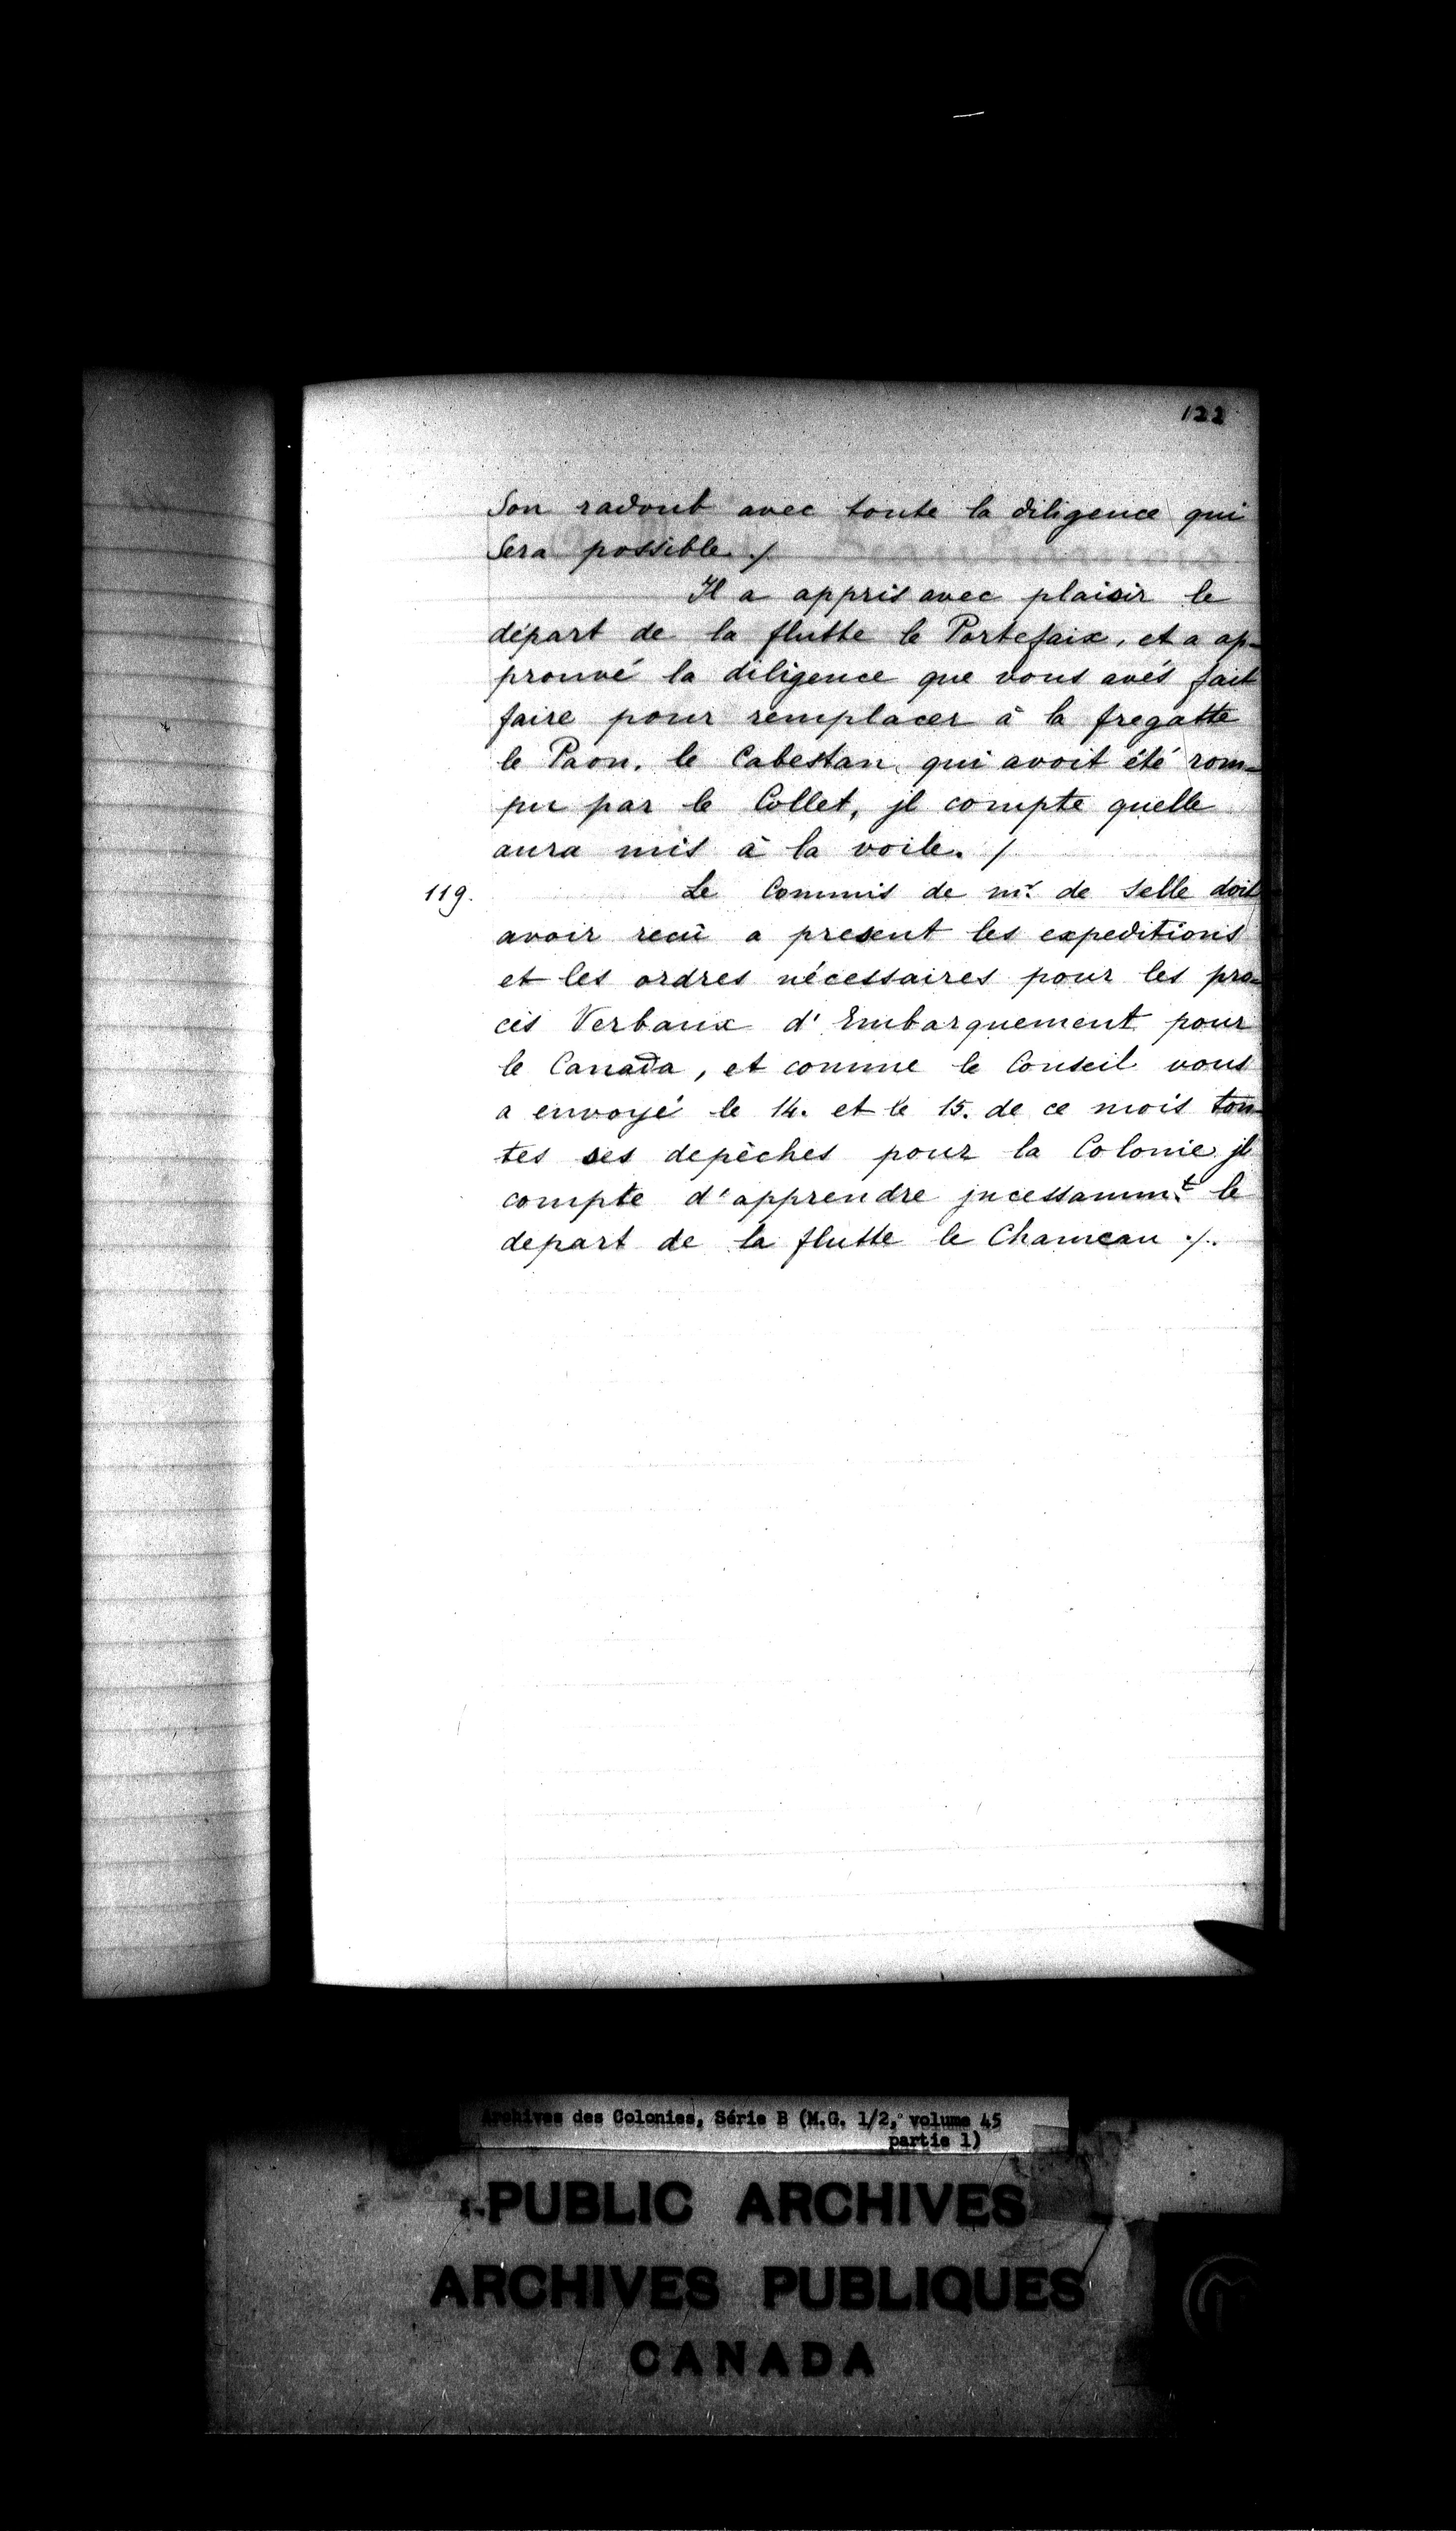 122
Son radoub avec toute la diligence qui
Sera possible ./.
Il a appris avec plaisir le
départ de la flutte le Portefaix, et a ap-
prouvé la diligence que vous avés fait
faire pour remplacer à la fregatte
le Paon, le Cabestan, qui avoit été rom-
pu par le Collet, jl compte quelle
aura mis à la voile. /
119. Le Commis de mr. de Selle doit
avoir recü a present les expeditions
et les ordres nécessaires pour les pro-
cés Verbaux d'Embarquement pour
le Canada, et comme le Conseil vous
a envoyé le 14. et le 15. de ce mois tou-
tes ses depêches pour la Colonie jl
compte d'apprendre jncessamm.t le
depart de la flutte le Chameau ./.
Archives des Colonies, Série B (M.G. 1/2, volume 45
partie 1)
PUBLIC ARCHIVES
ARCHIVES PUBLIQUES
CANADA